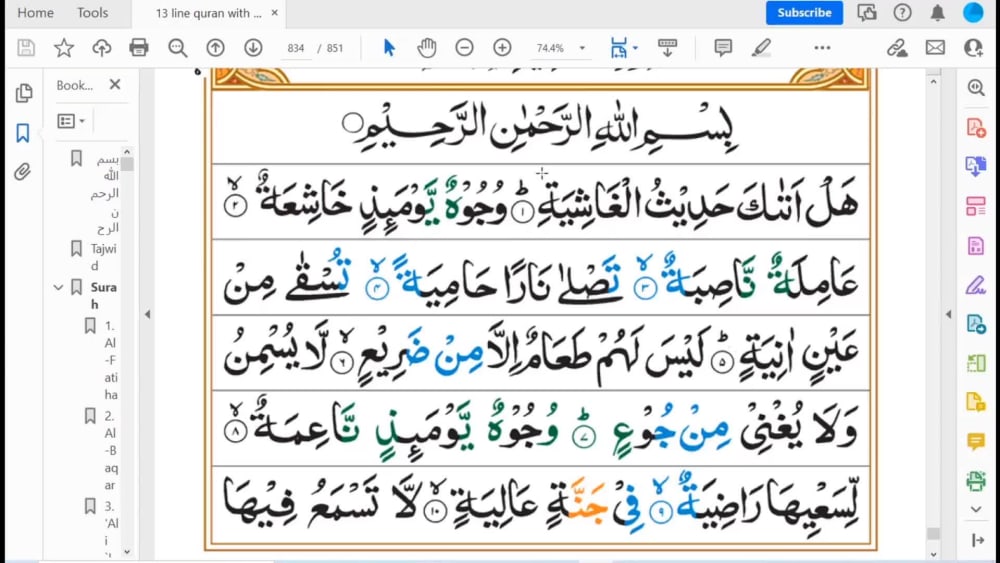 Home
Tools
13 line quran with ...
×
Subscribe
834 / 851
74.4%
Book...
بسم
الله
الرحم
ن
الرح
Tajwi
d
Sura
h
1.
Al
-F
ati
ha
2.
Al
-B
aq
ar
3.
'Al
i
بِسْمِ اللهِ الرَّحْمٰنِ الرَّحِيْمِ
هَلْ اَتٰىكَ حَدِيْثُ الْغَاشِيَةِ ؕ﴿۱﴾ وُجُوْهٌ يَّوْمَىِٕذٍ خَاشِعَةٌ ۙ﴿۲﴾
عَامِلَةٌ نَّاصِبَةٌ ۙ﴿۳﴾ تَصْلٰى نَارًا حَامِيَةً ۙ﴿۴﴾ تُسْقٰى مِنْ
عَيْنٍ اٰنِيَةٍ ؕ﴿۵﴾ لَيْسَ لَهُمْ طَعَامٌ اِلَّا مِنْ ضَرِيْعٍ ۙ﴿۶﴾ لَّا يُسْمِنُ
وَلَا يُغْنِيْ مِنْ جُوْعٍ ؕ﴿۷﴾ وُجُوْهٌ يَّوْمَىِٕذٍ نَّاعِمَةٌ ۙ﴿۸﴾
لِّسَعْيِهَا رَاضِيَةٌ ۙ﴿۹﴾ فِيْ جَنَّةٍ عَالِيَةٍ ۙ﴿۱۰﴾ لَّا تَسْمَعُ فِيْهَا